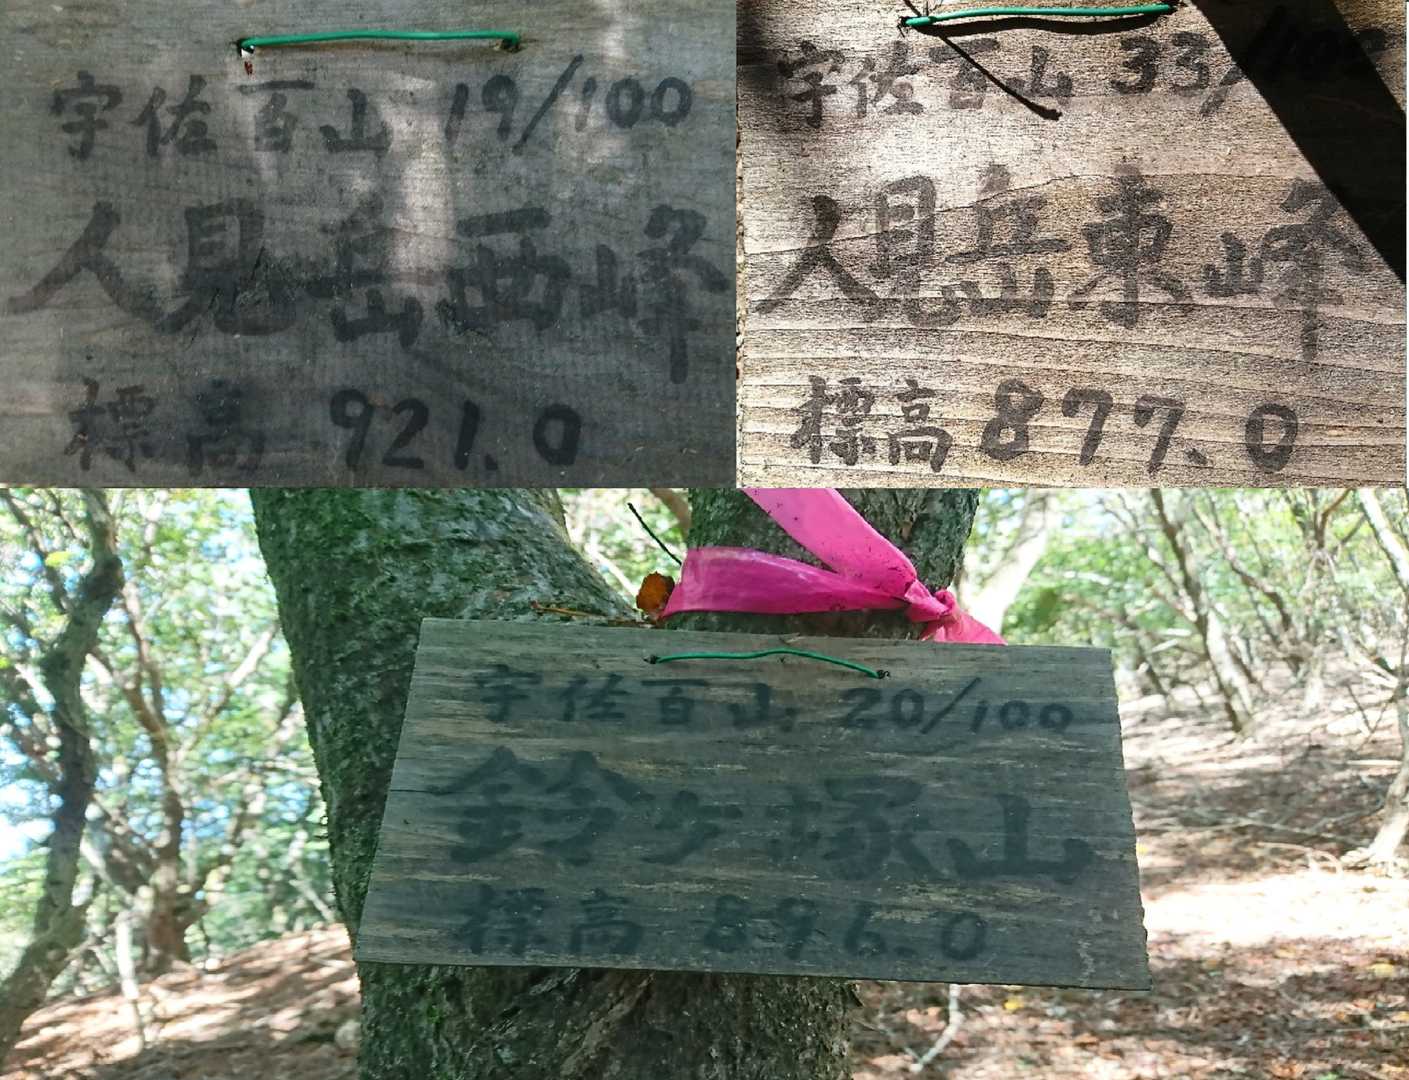 宇佐百山 19/100
人見岳西峰
標高 921.0
宇佐百山 33/100
人見岳東峰
標高 877.0
宇佐百山 20/100
鈴ヶ塚山
標高 896.0